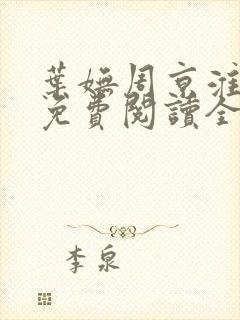 葉嫵周京淮
免費閱讀全
李泉